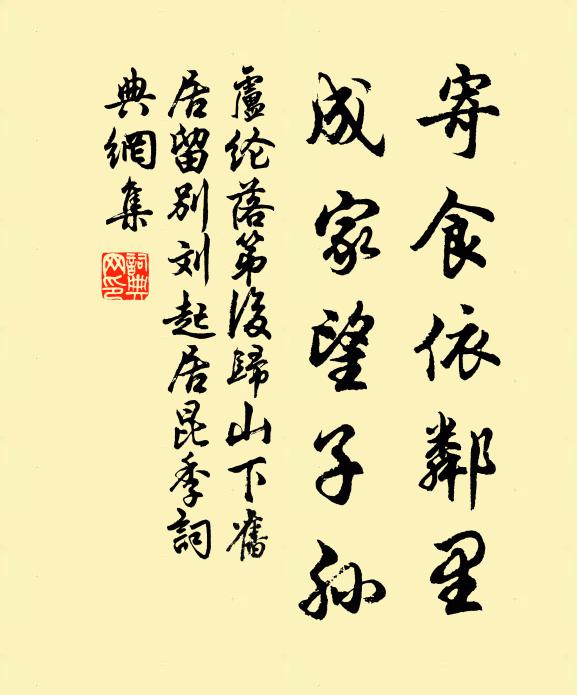 寄食依鄰里
成家望子孫
盧纶落第後歸山下舊
居留別刘起居昆季詞
典網集
詞典
网印